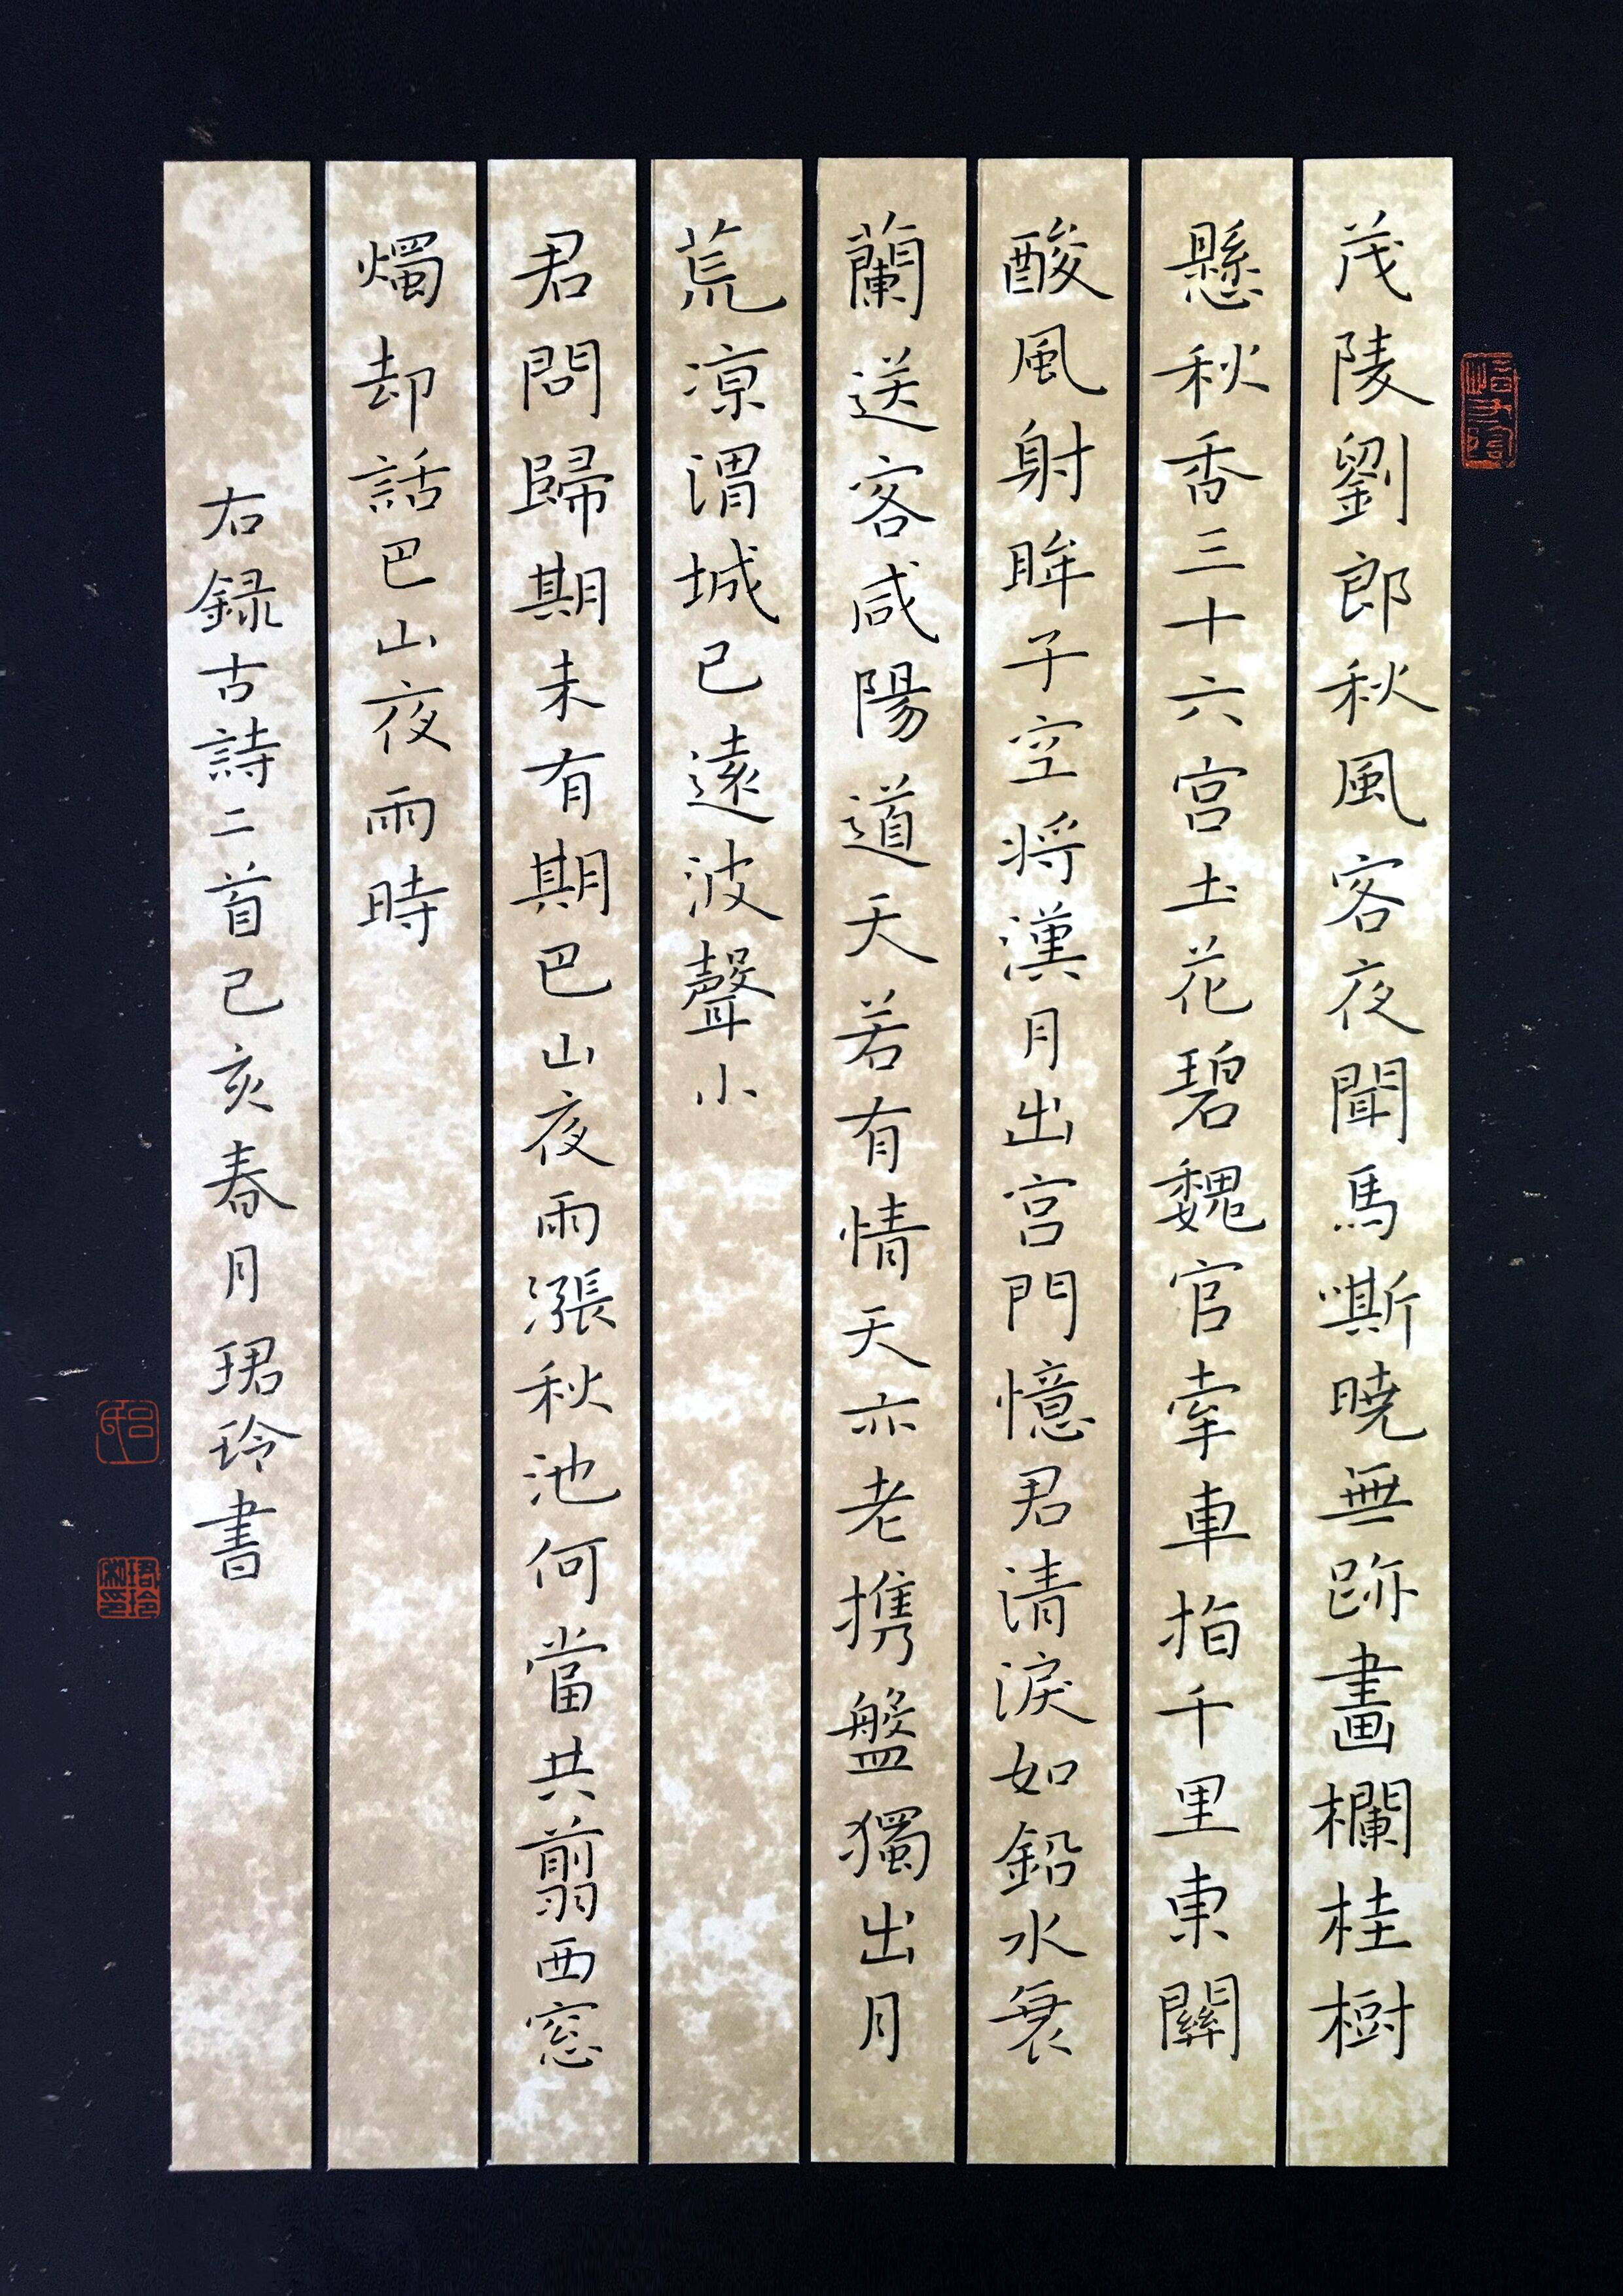 茂陵劉郎秋風客夜聞馬嘶曉無跡畫欄桂樹
懸秋香三十六宮土花碧魏官牽車指千里東關
酸風射眸子空將漢月出宮門憶君清淚如鉛水衰
蘭送客咸陽道天若有情天亦老攜盤獨出月
荒涼渭城已遠波聲小
君問歸期未有期巴山夜雨漲秋池何當共翦西窓
燭却話巴山夜雨時
右録古詩二首己亥春月珺玲書